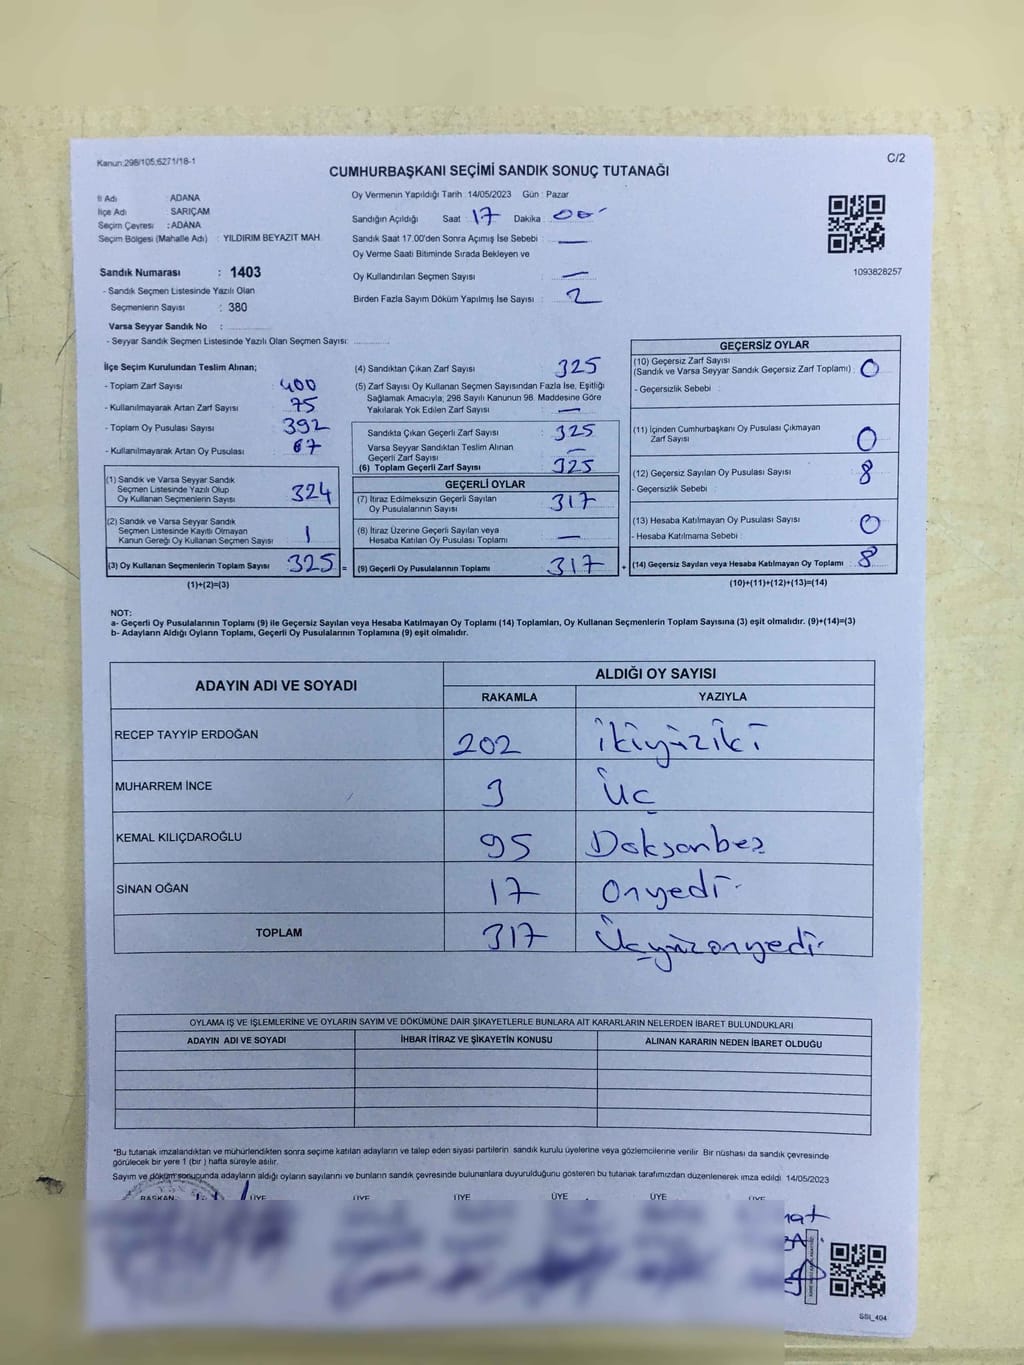 Kanun:298/105;6271/18-1
C/2
CUMHURBAŞKANI SEÇİMİ SANDIK SONUÇ TUTANAĞI
İl Adı : ADANA
İlçe Adı : SARIÇAM
Seçim Çevresi : ADANA
Seçim Bölgesi (Mahalle Adı) : YILDIRIM BEYAZIT MAH.
Sandık Numarası : 1403
- Sandık Seçmen Listesinde Yazılı Olan
Seçmenlerin Sayısı : 380
Varsa Seyyar Sandık No :
- Seyyar Sandık Seçmen Listesinde Yazılı Olan Seçmen Sayısı:
Oy Vermenin Yapıldığı Tarih : 14/05/2023 Gün : Pazar
Sandığın Açıldığı Saat : 17 Dakika : 00
Sandık Saat 17.00'den Sonra Açımış İse Sebebi : —
Oy Verme Saati Bitiminde Sırada Bekleyen ve
Oy Kullandırılan Seçmen Sayısı : —
Birden Fazla Sayım Döküm Yapılmış İse Sayısı : 2
1093828257
İlçe Seçim Kurulundan Teslim Alınan;
- Toplam Zarf Sayısı : 400
- Kullanılmayarak Artan Zarf Sayısı : 75
- Toplam Oy Pusulası Sayısı : 392
- Kullanılmayarak Artan Oy Pusulası : 67
(1) Sandık ve Varsa Seyyar Sandık
Seçmen Listesinde Yazılı Olup
Oy Kullanan Seçmenlerin Sayısı : 324
(2) Sandık ve Varsa Seyyar Sandık
Seçmen Listesinde Kayıtlı Olmayan
Kanun Gereği Oy Kullanan Seçmen Sayısı : 1
(3) Oy Kullanan Seçmenlerin Toplam Sayısı : 325 =
(1)+(2)=(3)
(4) Sandıktan Çıkan Zarf Sayısı : 325
(5) Zarf Sayısı Oy Kullanan Seçmen Sayısından Fazla İse, Eşitliği
Sağlamak Amacıyla; 298 Sayılı Kanunun 98. Maddesine Göre
Yakılarak Yok Edilen Zarf Sayısı : —
Sandıkta Çıkan Geçerli Zarf Sayısı : 325
Varsa Seyyar Sandıktan Teslim Alınan
Geçerli Zarf Sayısı : —
(6) Toplam Geçerli Zarf Sayısı : 325
GEÇERLİ OYLAR
(7) İtiraz Edilmeksizin Geçerli Sayılan
Oy Pusulalarının Sayısı : 317
(8) İtiraz Üzerine Geçerli Sayılan veya
Hesaba Katılan Oy Pusulası Toplamı : —
(9) Geçerli Oy Pusulalarının Toplamı : 317 +
GEÇERSİZ OYLAR
(10) Geçersiz Zarf Sayısı
(Sandık ve Varsa Seyyar Sandık Geçersiz Zarf Toplamı) : 0
- Geçersizlik Sebebi :
(11) İçinden Cumhurbaşkanı Oy Pusulası Çıkmayan
Zarf Sayısı : 0
(12) Geçersiz Sayılan Oy Pusulası Sayısı : 8
- Geçersizlik Sebebi :
(13) Hesaba Katılmayan Oy Pusulası Sayısı : 0
- Hesaba Katılmama Sebebi :
(14) Geçersiz Sayılan veya Hesaba Katılmayan Oy Toplamı : 8
(10)+(11)+(12)+(13)=(14)
NOT:
a- Geçerli Oy Pusulalarının Toplamı (9) ile Geçersiz Sayılan veya Hesaba Katılmayan Oy Toplamı (14) Toplamları, Oy Kullanan Seçmenlerin Toplam Sayısına (3) eşit olmalıdır. (9)+(14)=(3)
b- Adayların Aldığı Oyların Toplamı, Geçerli Oy Pusulalarının Toplamına (9) eşit olmalıdır.
ADAYIN ADI VE SOYADI
ALDIĞI OY SAYISI
RAKAMLA YAZIYLA
RECEP TAYYİP ERDOĞAN 202 İkiyüziki
MUHARREM İNCE 3 Üç
KEMAL KILIÇDAROĞLU 95 Doksanbeş
SİNAN OĞAN 17 Onyedi
TOPLAM 317 Üçyüzonyedi
OYLAMA İŞ VE İŞLEMLERİNE VE OYLARIN SAYIM VE DÖKÜMÜNE DAİR ŞİKAYETLERLE BUNLARA AİT KARARLARIN NELERDEN İBARET BULUNDUKLARI
ADAYIN ADI VE SOYADI İHBAR İTİRAZ VE ŞİKAYETİN KONUSU ALINAN KARARIN NEDEN İBARET OLDUĞU
*Bu tutanak imzalandıktan ve mühürlendikten sonra seçime katılan adayların ve talep eden siyasi partilerin sandık kurulu üyelerine veya gözlemcilerine verilir. Bir nüshası da sandık çevresinde
görülecek bir yere 1 (bir ) hafta süreyle asılır.
Sayım ve döküm sonucunda adayların aldığı oyların sayılarını ve bunların sandık çevresinde bulunanlara duyurulduğunu gösteren bu tutanak tarafımızdan düzenlenerek imza edildi. 14/05/2023
BAŞKAN ÜYE ÜYE ÜYE ÜYE ÜYE ÜYE
SSI_404